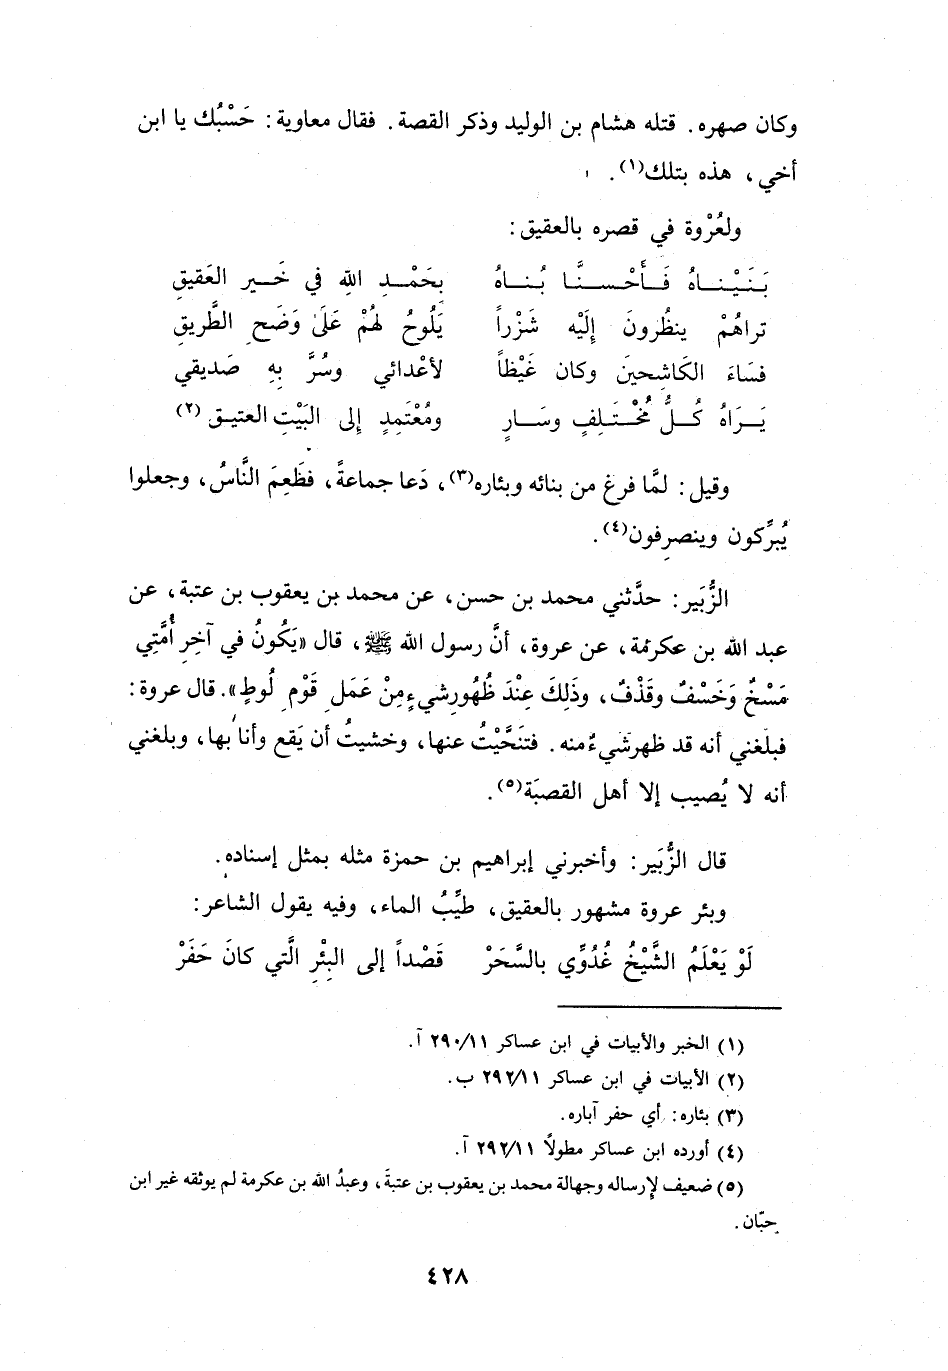 وكان صهره. قتله هشام بن الوليد وذكر القصة. فقال معاوية: حَسْبُك يا ابن
أخي، هذه بتلك(١).
ولعُرْوة في قصره بالعقيق:
بَنَيْنَاهُ فَأَحْسنَّا بُنَاهُ بِحَمْدِ اللهِ في خَيرِ العَقيقِ
تراهُمْ ينظُرونَ إلَيْه شَزْراً يَلُوحُ لهُمْ عَلَىٰ وَضَحِ الطَّريقِ
فسَاءَ الكَاشِحينَ وكان غَيْظاً لأعْدائي وسُرَّ بِهِ صَديقي
يَرَاهُ كُلُّ مُخْتَلِفٍ وسَارٍ ومُعْتَمِدٍ إلى البَيْتِ العتيق(٢)
وقيل: لمَّا فرغ من بنائه وبئاره(٣)، دَعا جماعةً، فطَعِمَ النَّاسُ، وجعلوا
يُبرِّكون وينصرِفون(٤).
الزُّبَير: حدَّثني محمد بن حسن، عن محمد بن يعقوب بن عتبة، عن
عبد الله بن عكرمة، عن عروة، أنَّ رسول الله ﷺ، قال «يَكُونُ في آخِرِ أُمَّتِي
مَسْخٌ وَخَسْفٌ وقَذْفٌ، وذَلِكَ عِنْدَ ظُهُورِ شيءٍ مِنْ عَمَلِ قَوْمِ لُوطٍ». قال عروة:
فبلَغني أنه قد ظهر شَيءٌ منه. فتَنَحَّيْتُ عنها، وخشيتُ أن يَقع وأنا بها، وبلغني
أنه لا يُصيب إلا أهل القصبَة(٥).
قال الزُّبَير: وأخبرني إبراهيم بن حمزة مثله بمثل إسناده.
وبئر عروة مشهور بالعقيق، طيِّبُ الماء، وفيه يقول الشاعر:
لَوْ يَعْلَمُ الشَّيْخُ غُدُوِّي بالسَّحَرْ قَصْداً إلى البِئْرِ الَّتي كانَ حَفَرْ
(١) الخبر والأبيات في ابن عساكر ٢٩٠/١١ آ.
(٢) الأبيات في ابن عساكر ٢٩٢/١١ ب.
(٣) بئاره: أي حفر آباره.
(٤) أورده ابن عساكر مطولاً ٢٩٢/١١ آ.
(٥) ضعيف لإرساله وجهالة محمد بن يعقوب بن عتبةَ، وعبدُ الله بن عكرمة لم يوثقه غير ابن
حبّان.
٤٢٨